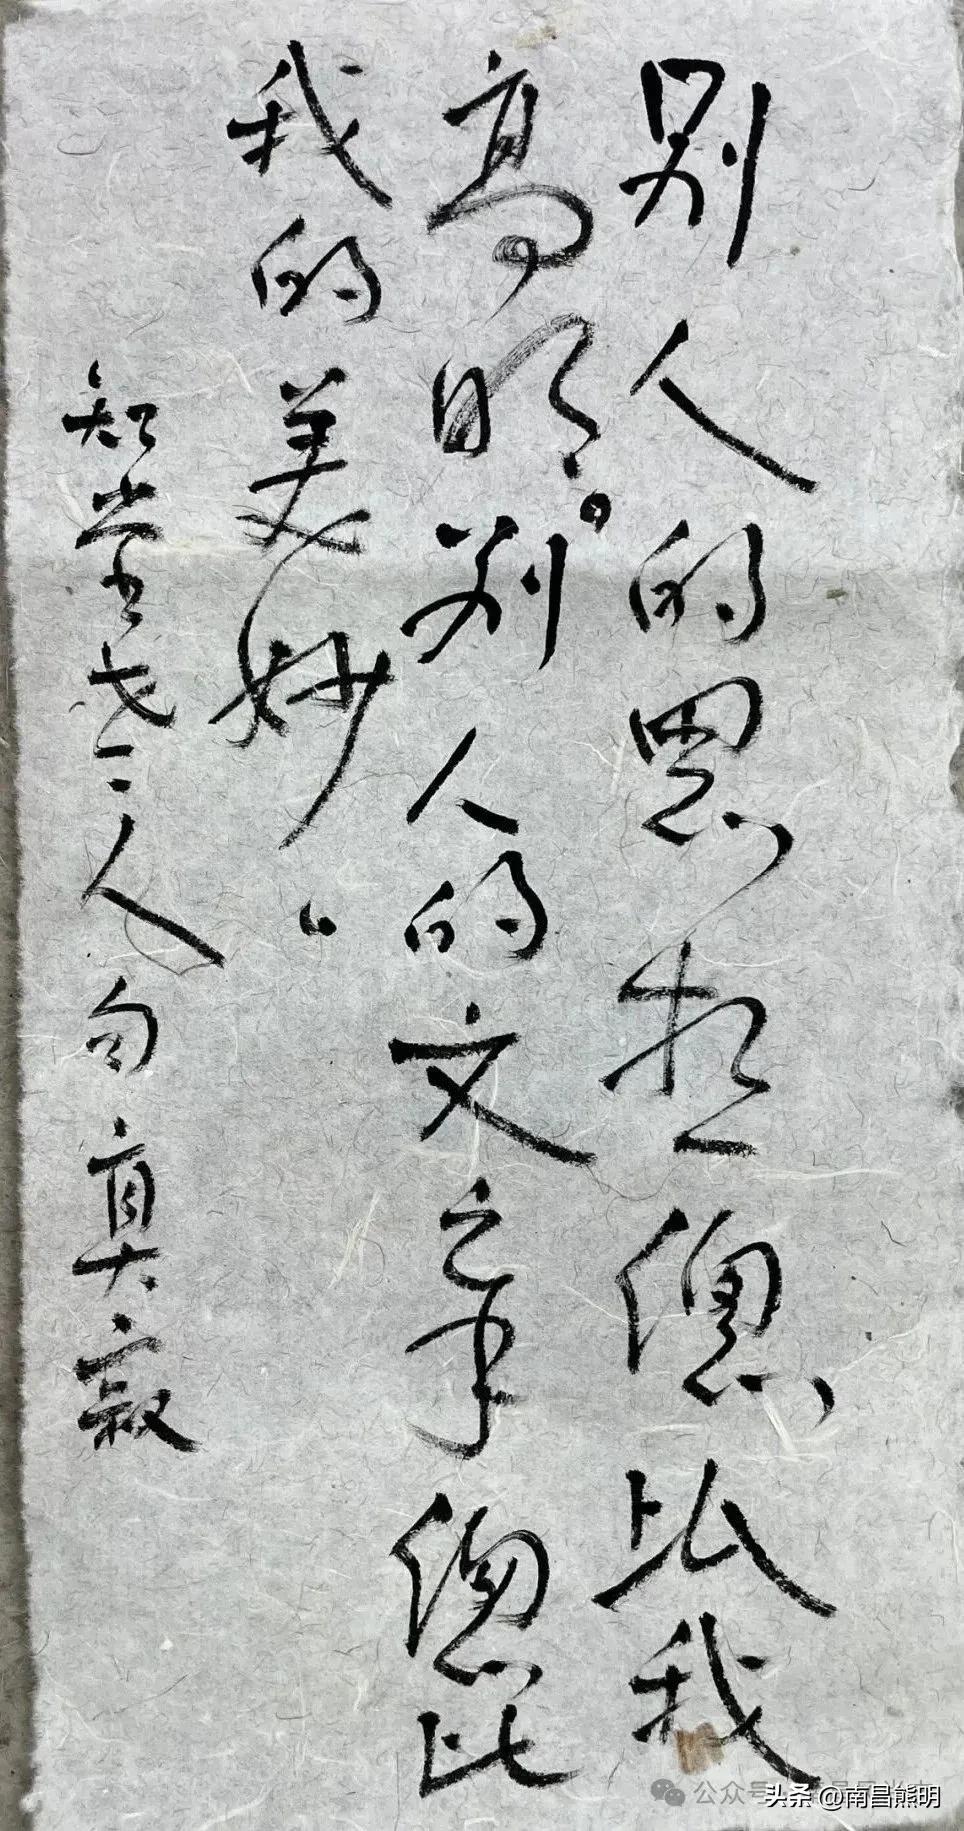 别人的思想總比我
高明。别人的文章總比
我的美妙。
知堂老人句 真寂
公众号
头条 @南昌熊明